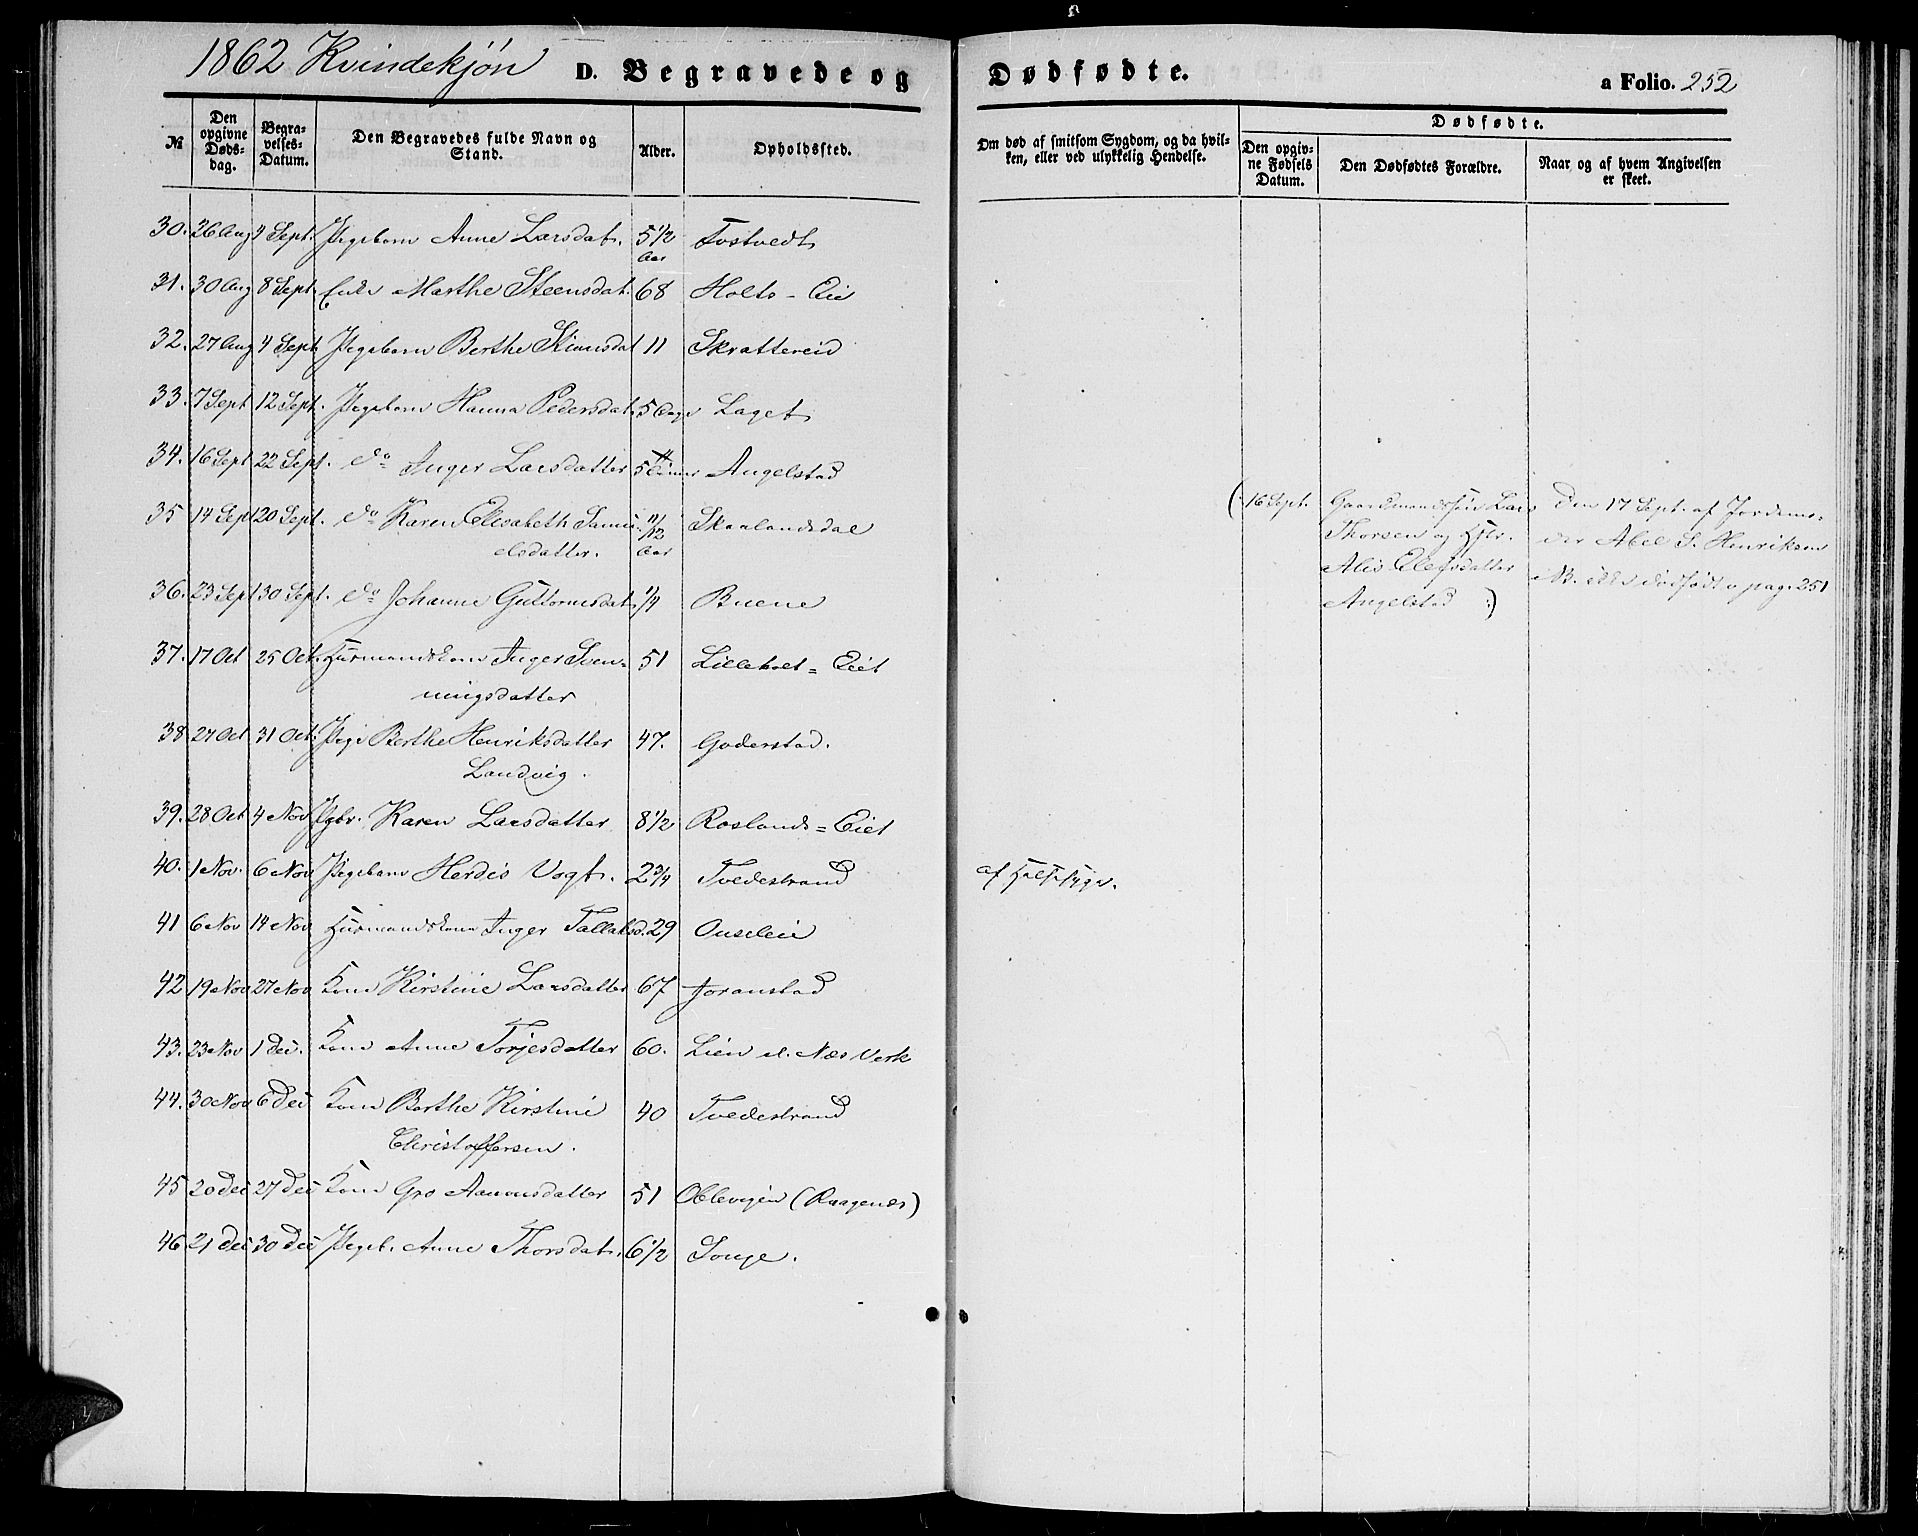 1862 Kvindekjøn D. Begravede og Dødfødte. a Folio. 252
№ Den opgivne Døds-dag. Begra-velses-Datum. Den Begravedes fulde Navn og Stand. Alder. Opholdssted. Om død af smitsom Sygdom, og da hvil-ken, eller ved ulykkelig Hendelse. Dødfødte. Den opgiv-ne Fødsels Datum. Den Dødfødtes Forældre. Naar og af hvem Angivelsen er skeet.
30. 26 Aug 4 Sept. Pigebarn Anne Larsdat. 5 1/2 Aar Tostvedt
31. 30 Aug 8 Sept. Enke Marthe Steensdat. 68 Holts-Eie
32. 27 Aug 4 Sept. Pigebarn Berthe Stiansdat 11 Skrattereid
33. 7 Sept 12 Sept. Pigebarn Hanna Pedersdat. 5 Dage Laget
34. 16 Sept 22 Sept. do Inger Larsdatter 5 Timer Angelstad
35 14 Sept 20 Sept. do Karen Elisabeth Samu- 11/12 Aar Skaalandsdal
elsdatter.
(: 16 Sept. Gaardmandssøn Lars Den 17 Sept. af Jordemo-
Thorsen og Hstr. der Abel S. Henriksen
Alis Olefsdatter NB. ikke dødfødt v. pag. 251
Angelstad :)
36. 23 Sept 30 Sept. do Johanne Guttormsdat. 1/4 Buene
37. 17 Oct 25 Oct. Husmandskone Inger Sven- 51 Lilleholt=Eiet
ningsdatter
38 27 Oct 31 Oct. Pige Berthe Henriksdatter 47. Goderstad.
Landvig.
39. 28 Oct 4 Nov Pgbr. Karen Larsdatter 8 1/2 Roslands=Eiet
40. 1 Nov. 6 Nov Pigebarn Herdis Vogt. 2 3/4 Tvedestrand af Halssyge.
41 6 Nov 14 Nov Husmandskone Inger Tallaksd. 29 Ouseleie
42 19 Nov 27 Nov Kone Kirstine Larsdatter 67 Joranstad
43. 23 Nov 1 Dec. Kone Anne Torjesdatter 60. Lien v. Næs Verk
44. 30 Nov 6 Dec Kone Berthe Kirstine 40 Tvedestrand
Christoffersen.
45 20 Dec 27 Dec Kone Gro Aanonsdatter 51 Oblevejen (Raagenes)
46 21 Dec 30 Dec Pigeb. Anne Thorsdat. 6 1/2 Songe.